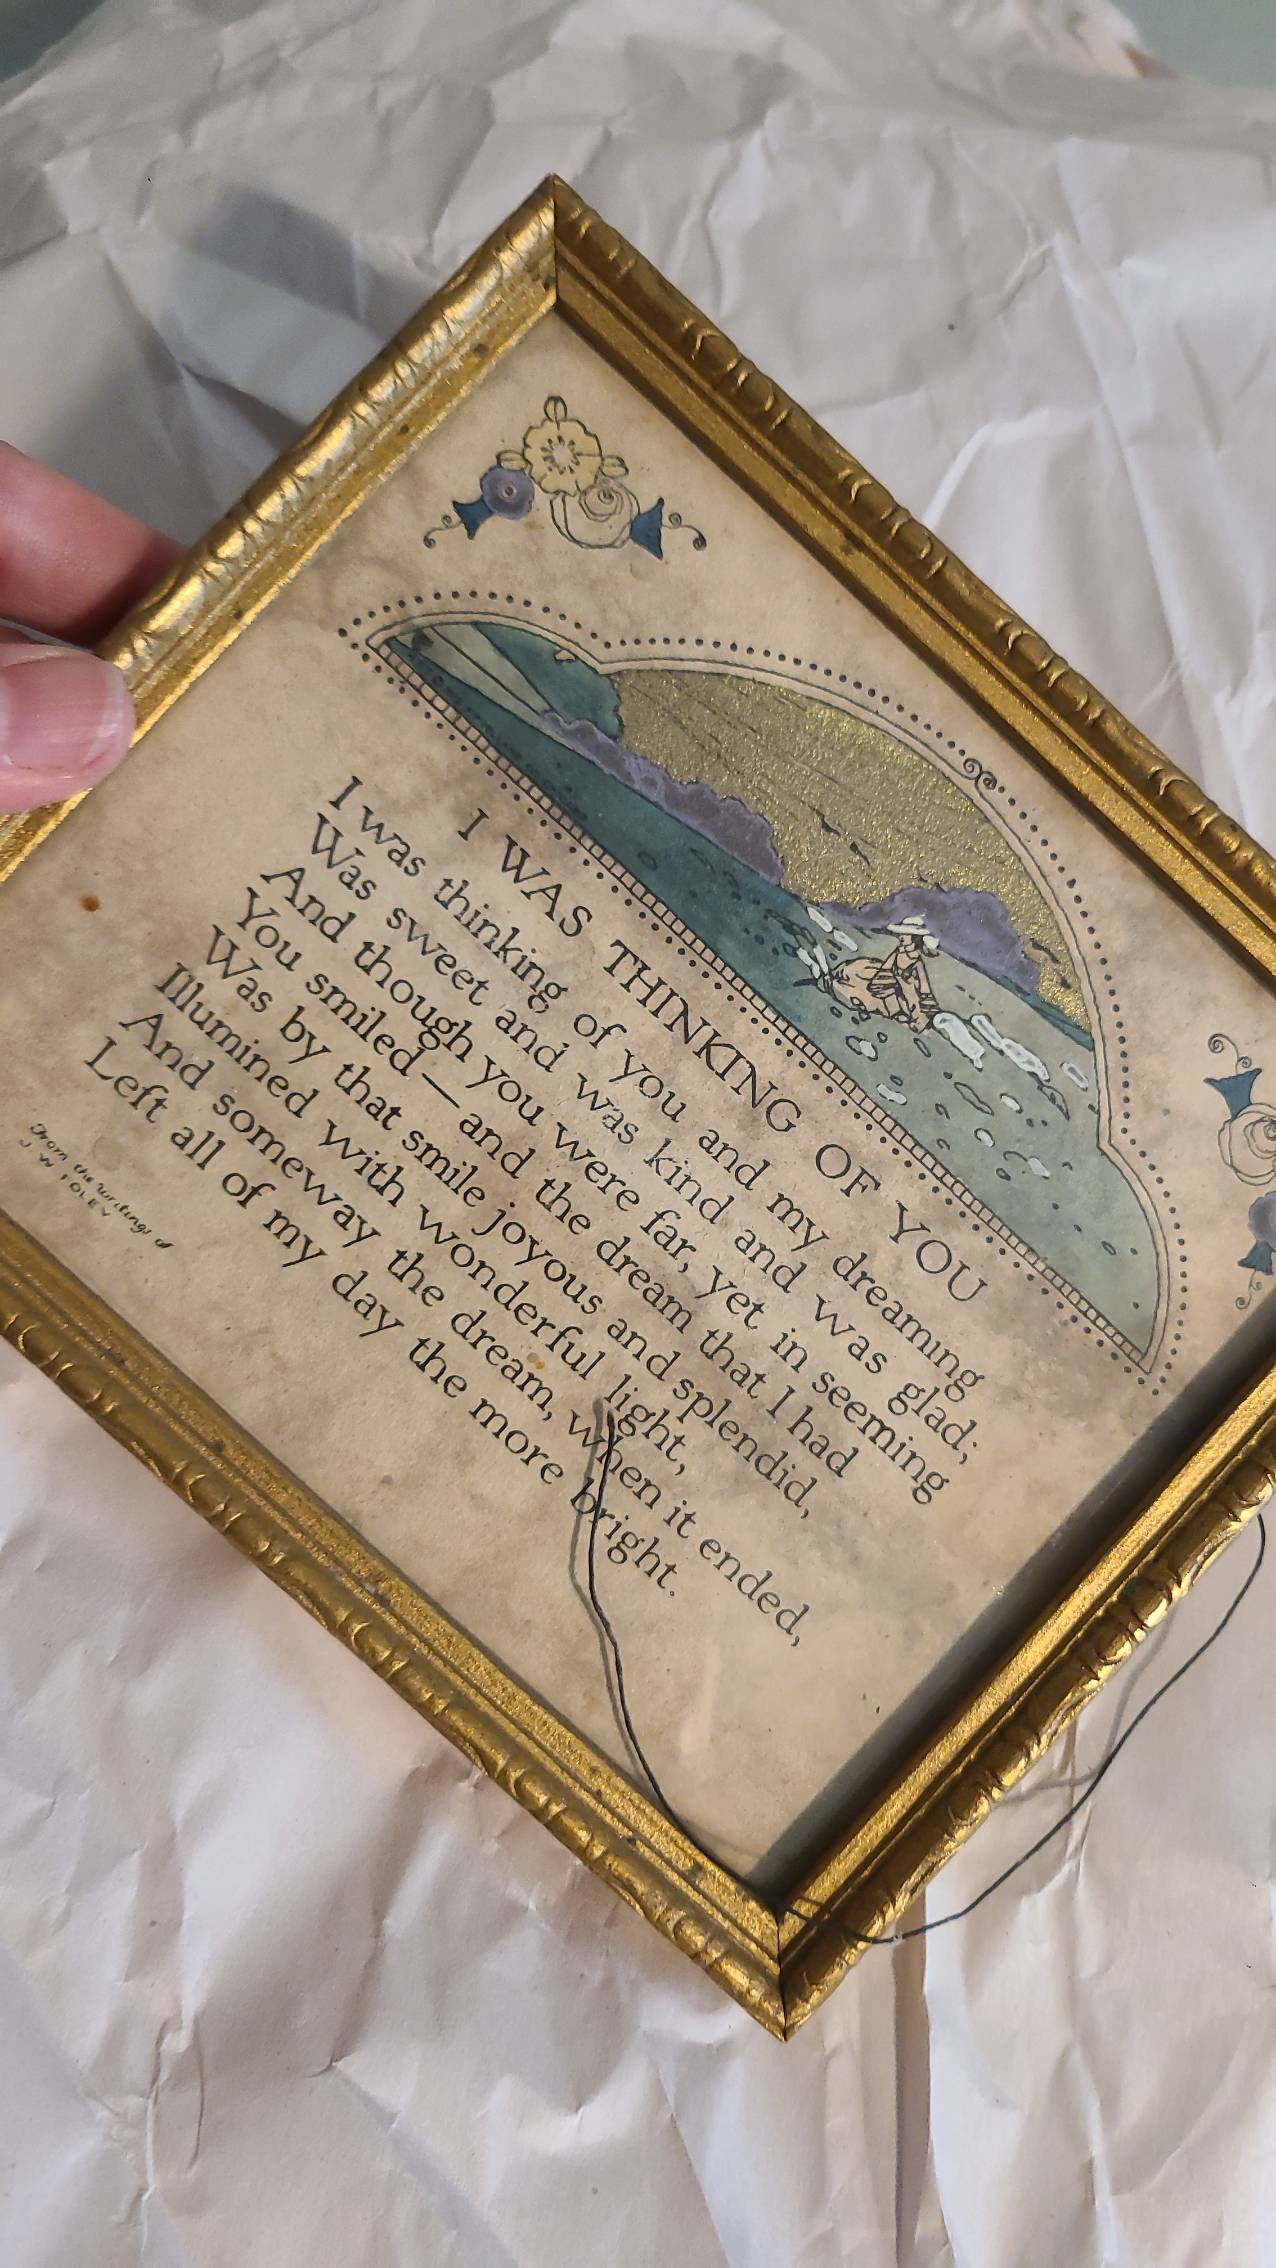 I WAS THINKING OF YOU
I was thinking of you and my dreaming
Was sweet and was kind and was glad;
And though you were far, yet in seeming
You smiled—and the dream that I had
Was by that smile joyous and splendid,
Illumined with wonderful light,
And someway the dream, when it ended,
Left all of my day the more bright.
From the writings of
J W FOLEY